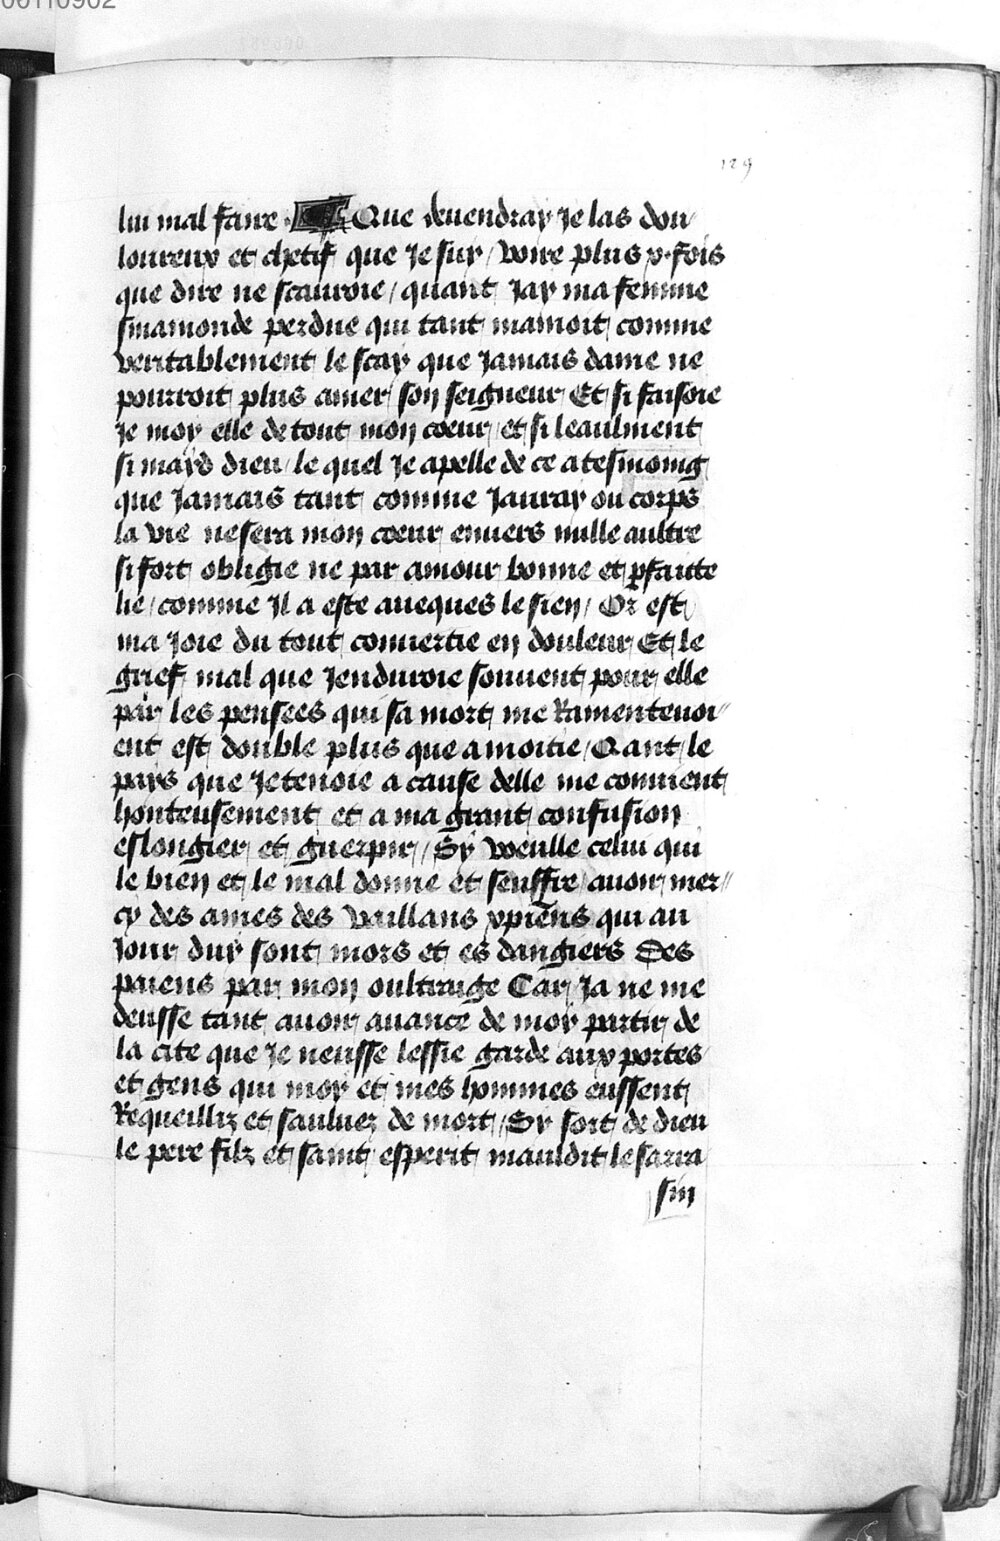 00110902
129
lui mal faire. Que deuendray Je las dou
loureux et chetif que Je suy / voire plus x. fois
que dire ne scauroie / quant Jay ma femme
smamonde perdue qui tant mamoit comme
veritablement le scay que Jamais dame ne
pourroit plus amer son seigneur Et si faisoie
Je moy elle de tout mon coeur et si leaulment
si mayd dieu / le quel Je apelle de ce a tesmoing
que Jamais tant comme Jauray ou corps
la vie ne sera mon coeur enuers nulle aultre
si fort obligie ne par amour bonne et pfaite
lie / comme Jl a este aueques le sien / Or est
ma Joie du tout conuertie en douleur Et le
grief mal que Jenduroie souuent pour elle
par les pensees qui sa mort me Ramenteuoi〃
ent est double plus que a moitie / Qant le
pays que Je tenoie a cause delle me conuient
honteusement et a ma grant confusion
eslongier et guerpir // Sy voeulle celui qui
le bien et le mal donne et seuffre / auoir mer〃
cy des ames des vaillans xpiens qui au
Jour duy sont mors et es dangiers Des
paiens par mon oultraige Car Ja ne me
deusse tant auoir auance de moy partir de
la cite que Je neusse lessie garde aux portes
et gens qui moy et mes hommes eussent
Requeilliz et sauluez de mort // Sy soit de dieu
le pere filz et saint esperit mauldit le sarra
sin